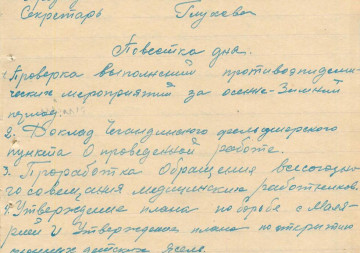 Секретарь Глухова
Повестка дня.
1. Проверка выполнений противоэпидеми-
ческих мероприятий за осенне-зимний
период.
2. Доклад фельдшерского
пункта о проведенной работе.
3. Проработка Обращения всесоюзно-
го совещания медицинских работников.
4. Утверждение плана по борьбе с маля-
рией и Утверждение плана по открытию
детских яслей.